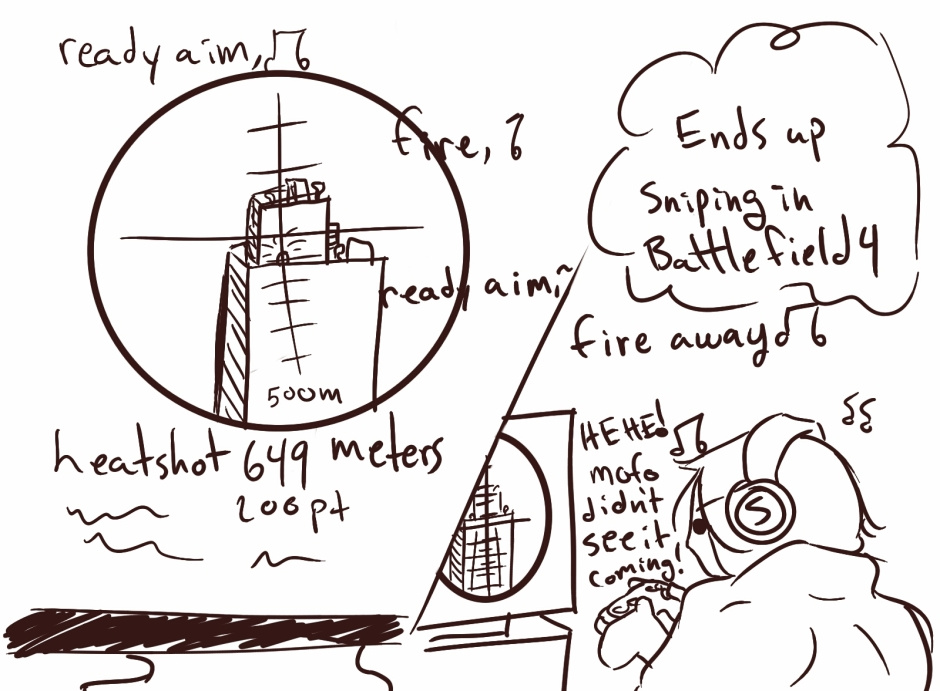 ready aim,
fire,
ready aim,~
fire away
500m
heatshot 649 meters
200pt
Ends up
Sniping in
Battlefield 4
HEHE!
mofo
didn't
see it
coming!
S